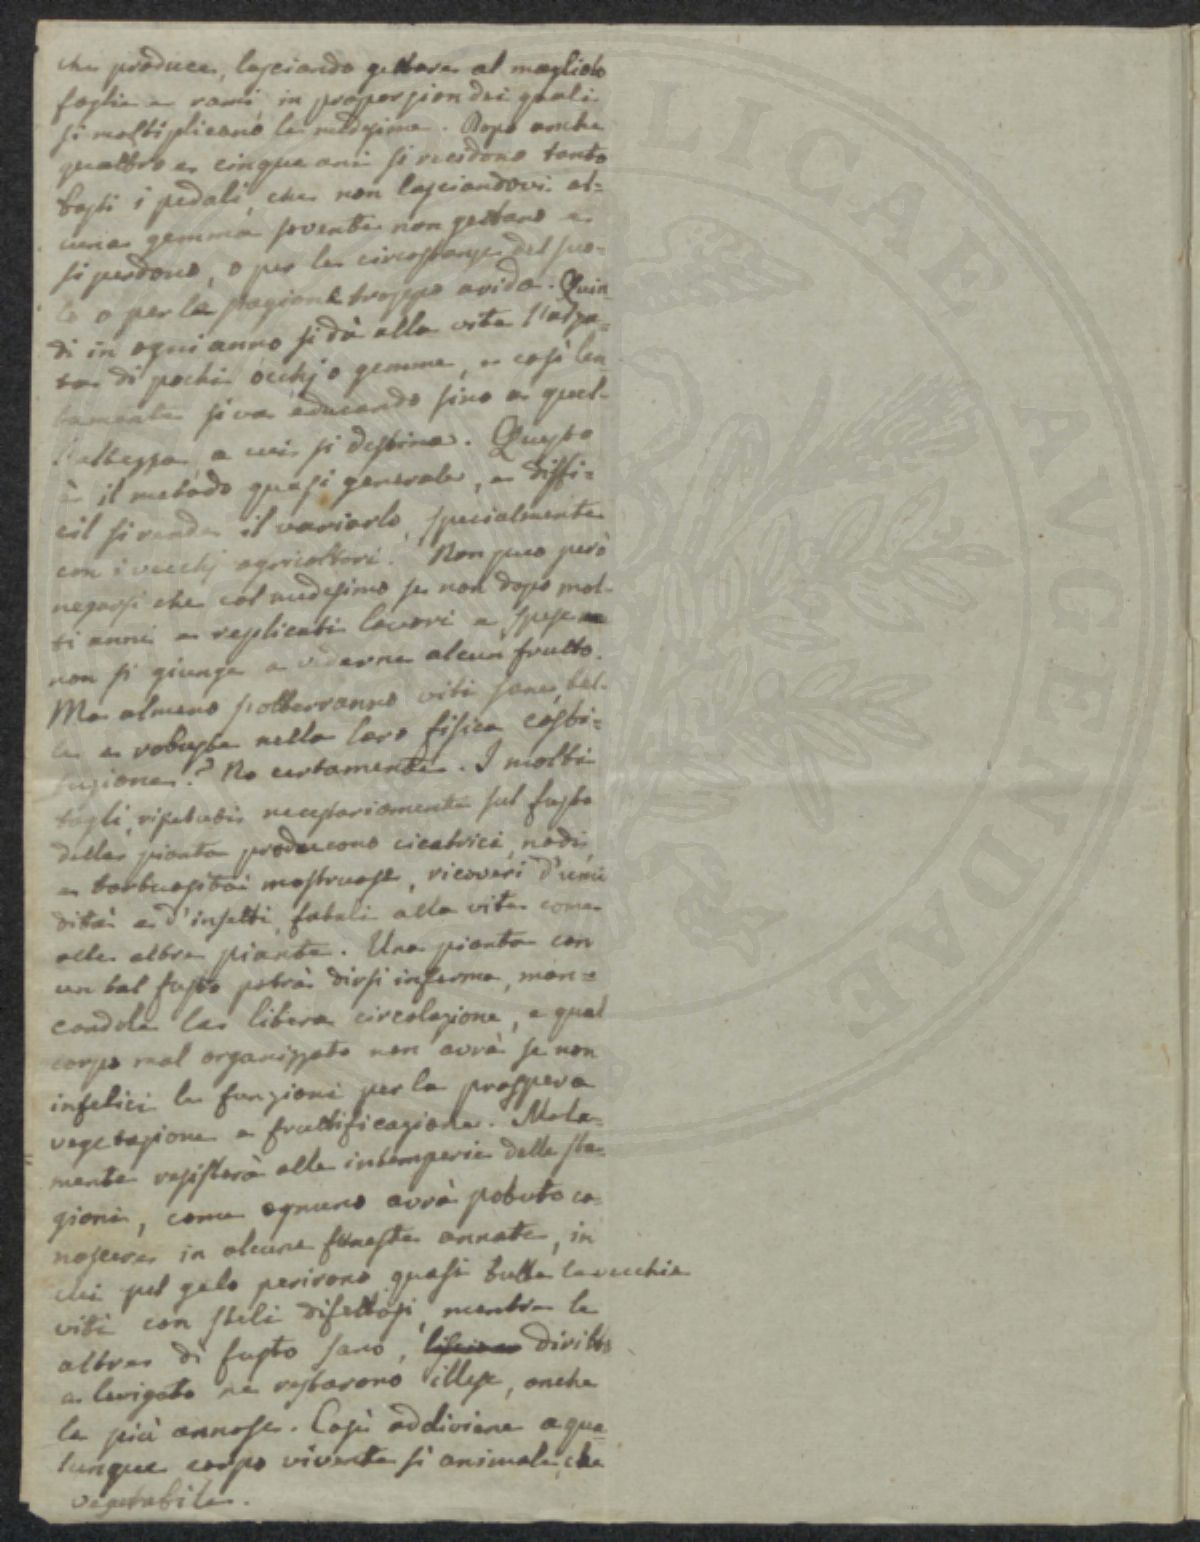 che produce, lasciando gettare al magliolo
foglie e rami in proporzion dei quali
si moltiplicano le medesime. Dopo anche
quattro e cinque ani si recidono tanto
bassi i pedali, che non lasciandovi al=
cuna gemma sovente non gettano e
si perdono, o per le circostanze del suo-
lo o per la stagione troppo arida. Quin
di in ogni anno si dà alla vite l'alza=
ta di pochi occhj o gemme, e così len
tamente si va educando sino a quel-
l'altezza, a cui si destina. Questo
è il metodo quasi generale, e diffi=
cil si rende il variarlo, specialmente
con i vecchj agricoltori. Non puco però
negarsi che col medesimo se non dopo mol-
ti anni e replicati lavori e spese
non si giunge a vederne alcun frutto.
Ma almeno s'otterranno viti sane, bel-
le e robuste nella loro fisica costi=
tuzione? No certamente. I molti
tagli, ripetuti necessariamente sul fusto
della pianta producono cicatrici, nodi,
e tortuosità mostruose, ricoveri d'umi
dità e d'insetti, fatali alla vite come
alle altre piante. Una pianta con
un tal fusto potrà dirsi inferma, man=
candole la libera circolazione, e qual
corpo mal organizzato non avrà se non
infelici le funzioni per la prospera
vegetazione e fruttificazione. Mala=
mente resisterà alle intemperie delle sta=
gioni, come ognuno avrà potuto co-
noscere in alcune funeste annate, in
cui pel gelo perirono quasi tutte le vecchie
viti con steli difettosi, mentre le
altre di fusto sano, diritto
e levigato ne restarono illese, anche
le più annose. Così addiviene a qua
lunque corpo vivente sì animale, che
vegetabile.
LICAE AVGENDAE